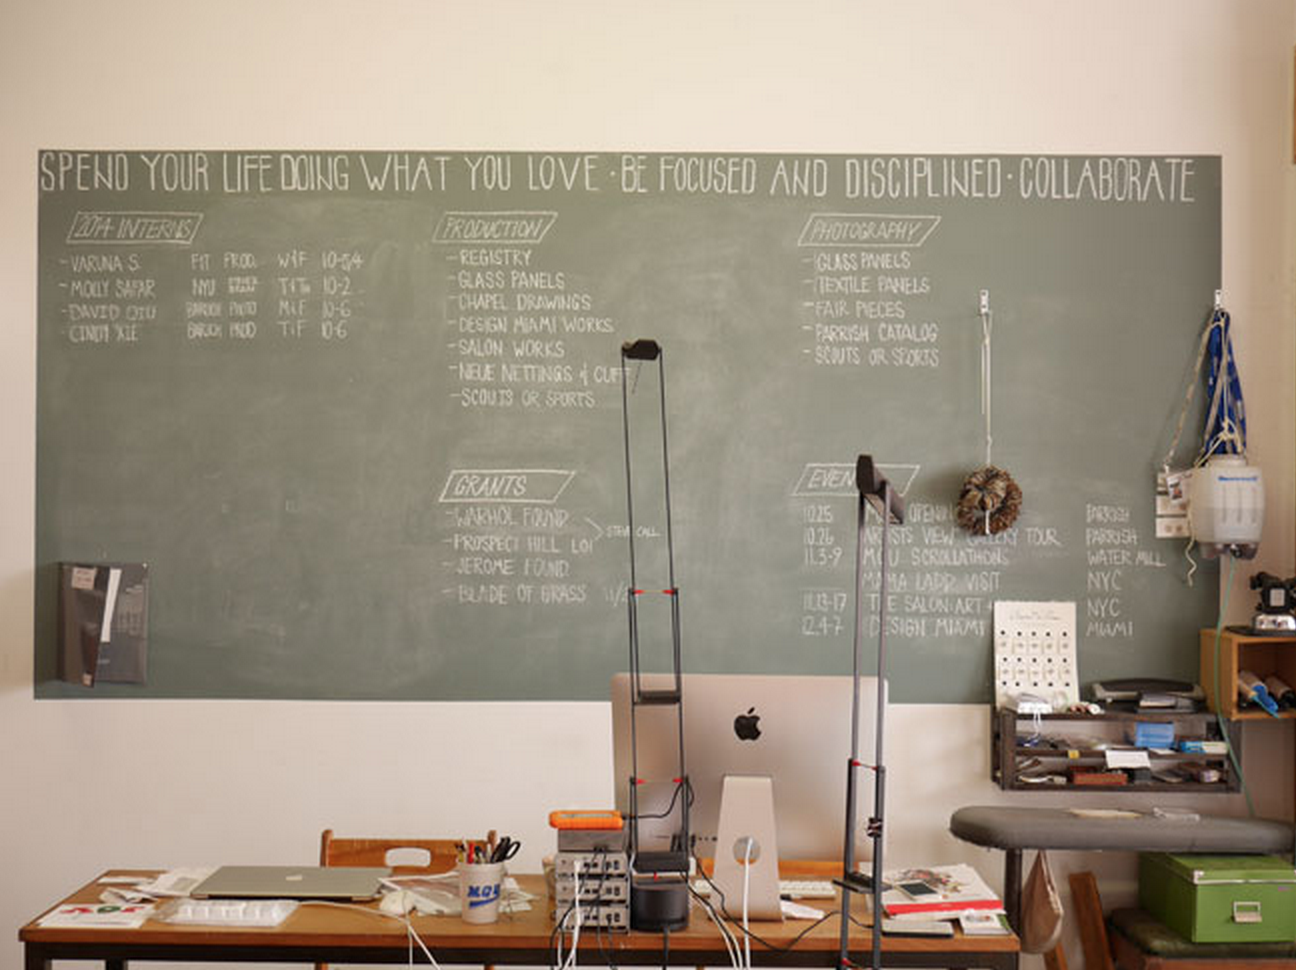 SPEND YOUR LIFE DOING WHAT YOU LOVE · BE FOCUSED AND DISCIPLINED · COLLABORATE
2014 INTERNS
- VARUNA S. FIT PROD. W+F
- MOLLY SAFAR NYU 10-2
- DAVID BARUCH PHOTO M+F 10-6
- CINDY XIE BARUCH PROD T+F 10-6
PRODUCTION
- REGISTRY
- GLASS PANELS
- CHAPEL DRAWINGS
- DESIGN MIAMI WORKS
- SALON WORKS
- NEUE NETTINGS & CUFF
- SCOUTS OR SPORTS
GRANTS
- WARHOL FOUND
- PROSPECT HILL LOI
CALL
- JEROME FOUND.
- BLADE OF GRASS 11/
PHOTOGRAPHY
- GLASS PANELS
- TEXTILE PANELS
- FAIR PIECES
- PARRISH CATALOG
- SCOUTS OR SPORTS
EVEN
10.25 OPENIN PARRISH
10.26 ARTISTS VIEW GALLERY TOUR PARRISH
11.3-9 MOU SCROLLATHONS WATER MILL
MAMA LADD VISIT NYC
11.13-17 THE SALON ART + NYC
12.4-7 DESIGN MIAMI MIAMI